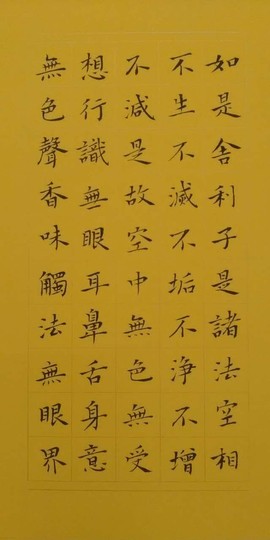 如是舍利子是諸法空相
不生不滅不垢不淨不增
不減是故空中無色無受
想行識無眼耳鼻舌身意
無色聲香味觸法無眼界